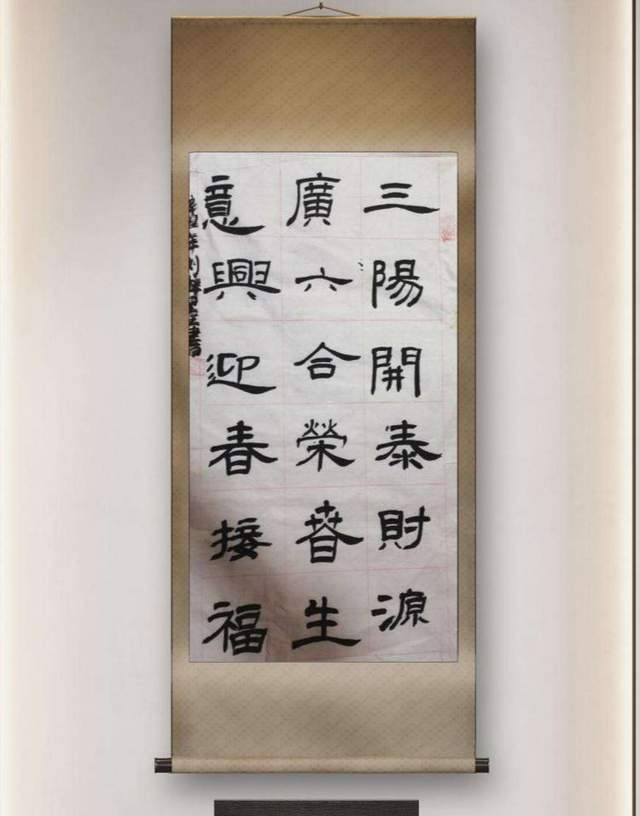 三陽開泰財源
廣六合榮春生
意興迎春接福
辛丑年